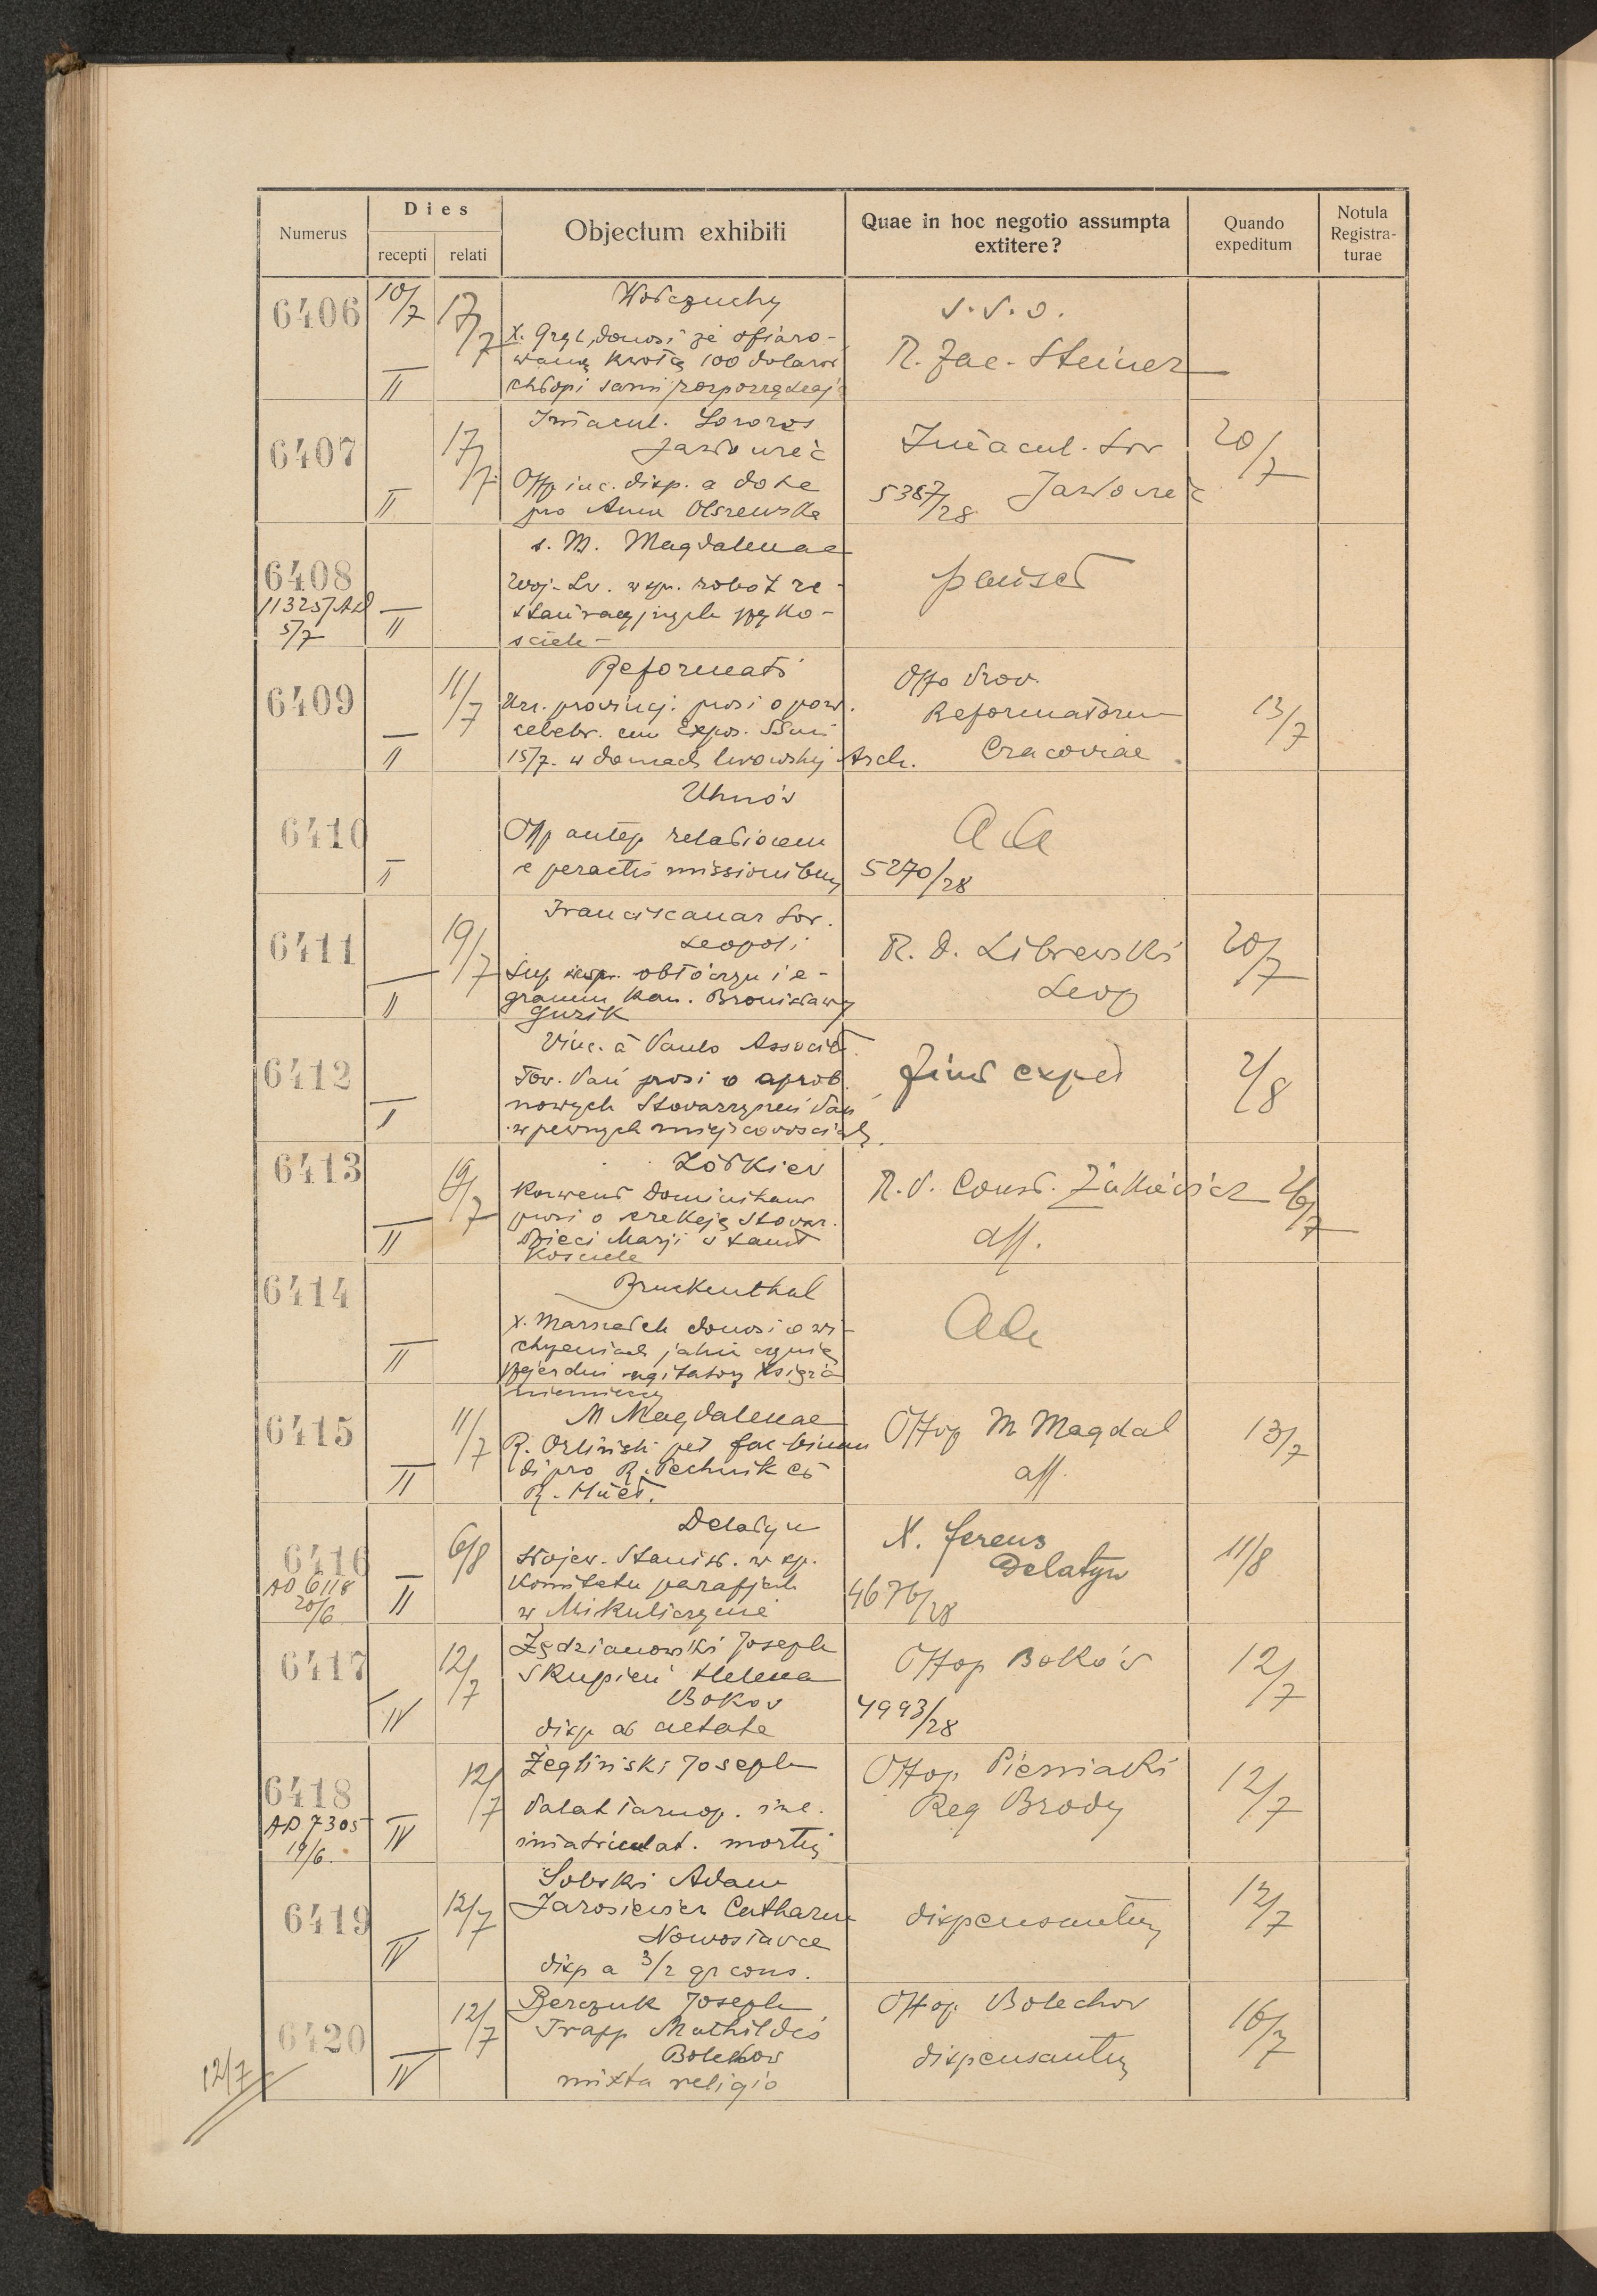 Numerus
Dies
recepti
relati
Objectum exhibiti
Quae in hoc negotio assumpta
extitere?
Quando
expeditum
Notula
Registra-
turae
6406
10/7
17/7
II
Wołczuchy
donosi że ofiaro-
waną kwotą 100 dolarów
chłopi sami rozporządzają
R. Jac. Steiner
6407
17/7
II
Immacul. Sorores
Jazłowiec
Off. inc. disp. a dote
pro Anna Olszewska
Immacul. Sor
5387/28 Jazłowiec
20/7
6408
5/7
II
s. M. Magdalenae
Woj. Lw. w sp. robot re-
stauracyjnych
6409
11/7
II
Reformati
prosi o pozw.
celebr. cum Expos. SSmi
15/7. w domach lwowskiej Arch.
Offo Prov.
Reformatorum
Cracoviae
13/7
6410
II
Uhnów
relationem
e peractis missionibus
Ada
5270/28
6411
19/7
II
Franciscanar Sor.
Leopoli
obłóczyn i e-
gramin kan. Bronisławy
Guzik
R. D. Librewski
Leop
20/7
6412
I
Vinc. à Paulo Associat.
Tow. Pań prosi o aprob.
nowych Stowarzyszeń Pań
w pewnych miejscowościach.
exped
2/8
6413
19/7
II
Żółkiew
Konwent Dominikan
prosi o erekcję Stowar.
Dzieci Marji w tamt
Kościele
R. P. Const. Żukiewicz
aff.
26/7
6414
II
Bruckenthal
donosi o wi-
chrzeniach jakie czynią
agitatorzy księża
niemieccy
Ada
6415
11/7
II
M Magdalenae
R. Orliński pet fac binan
di pro R. Pechnik et
Offop M Magdal
aff.
13/7
6416
AD 6118
20/6
6/8
II
Delatyn
Wojew. Stanisł. w sp.
Komitetu parafjaln
w Mikuliczynie
X. Ferens
Delatyn
4676/28
11/8
6417
12/7
IV
Żędzianowski Joseph
Skupień Helena
Boków
disp ab aetate
Offop Boków
4993/28
12/7
6418
AD 7305
19/6.
12/7
IV
Żegliński Joseph
Palat Tarnop. inc.
immatriculat. mortis
Offop Pieniaki
Reg Brody
12/7
6419
12/7
IV
Sobski Adam
Jarosiewicz Catharin
Nowosiance
disp a 3/2 gr cons.
dispensantur
12/7
6420
12/7
12/7
IV
Berczuk Joseph
Trapp Mathildis
Bolechow
mixta religio
Offop Bolechow
dispensantur
16/7